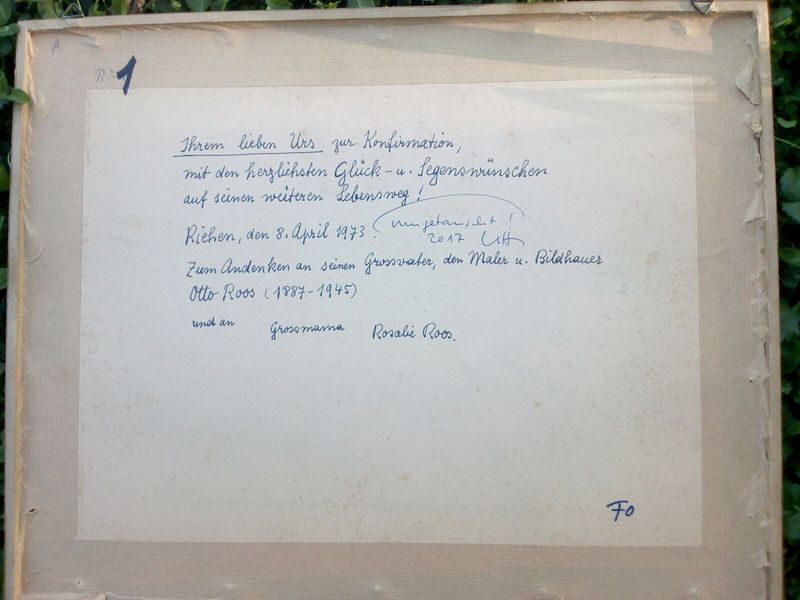 A
No 1
Ihrem lieben Urs zur Konfirmation,
mit den herzlichsten Glück- u. Segenswünschen
auf seinen weiteren Lebensweg!
Riehen, den 8. April 1973.
umgetauscht!
2017
Zum Andenken an seinen Grossvater, den Maler u. Bildhauer
Otto Roos (1887-1945)
und an Grossmama Rosalie Roos.
Fo